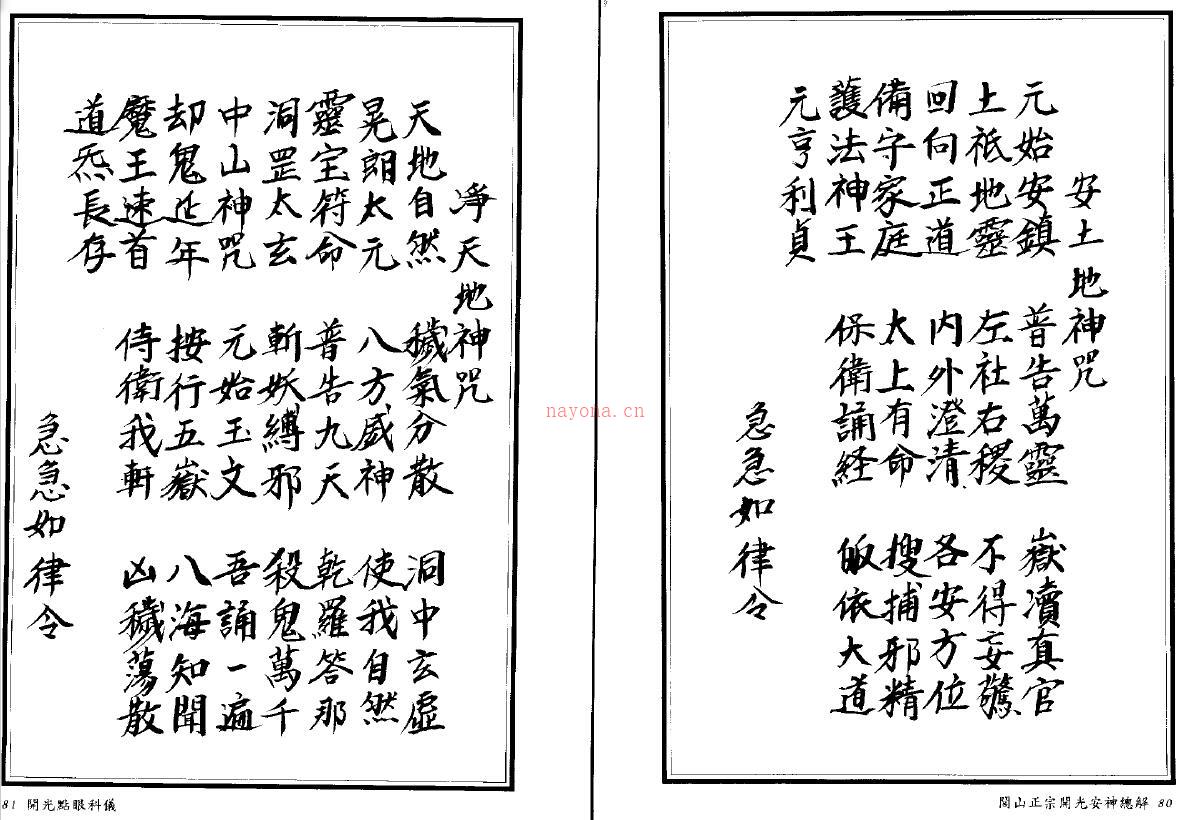 安土地神咒
元始安鎮 普告萬靈 嶽瀆真官
土祇地靈 左社右稷 不得妄驚
回向正道 內外澄清 各安方位
備守家庭 太上有命 搜捕邪精
護法神王 保衛誦経 皈依大道
元亨利貞
急急如律令
閭山正宗開光安神總解 80
淨天地神咒
天地自然 穢氣分散 洞中玄虛
晃朗太元 八方威神 使我自然
靈宝符命 普告九天 乾羅答那
洞罡太玄 斬妖縛邪 殺鬼萬千
中山神咒 元始玉文 吾誦一遍
却鬼延年 按行五嶽 八海知聞
魔王速首 侍衛我軒 凶穢蕩散
道炁長存
急急如律令
81 開光點眼科儀
nayona.cn